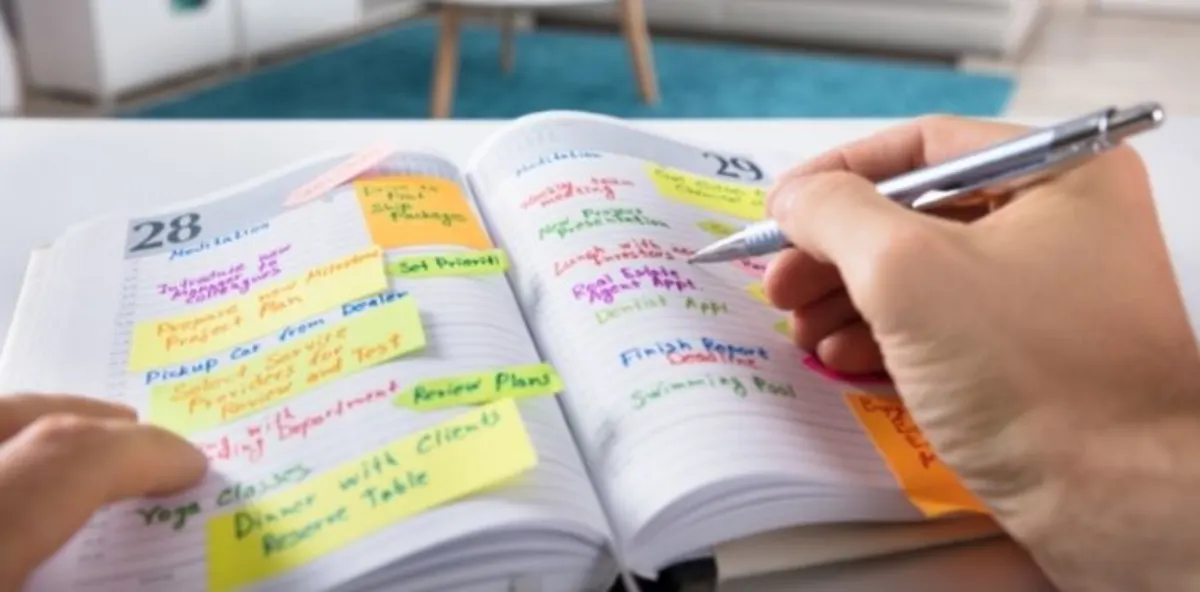 28
Meditation
Introduce new
Manager to
Colleagues
Ship
Packages
Prepare new Milestone
Project Plan
Set Prioriti
Pickup Car from Dealer
Select Service
Providers for
Review and Test
with
Department
Review Plans
Yoga Classes
Dinner with Clients
Reserve Table
29
Meditation
Weekly team
meeting
New Project
Presentation
Lunch with
Investors
Real Estate
Agent Appt.
Dentist Appt.
Finish Report
Deadline
Swimming Pool